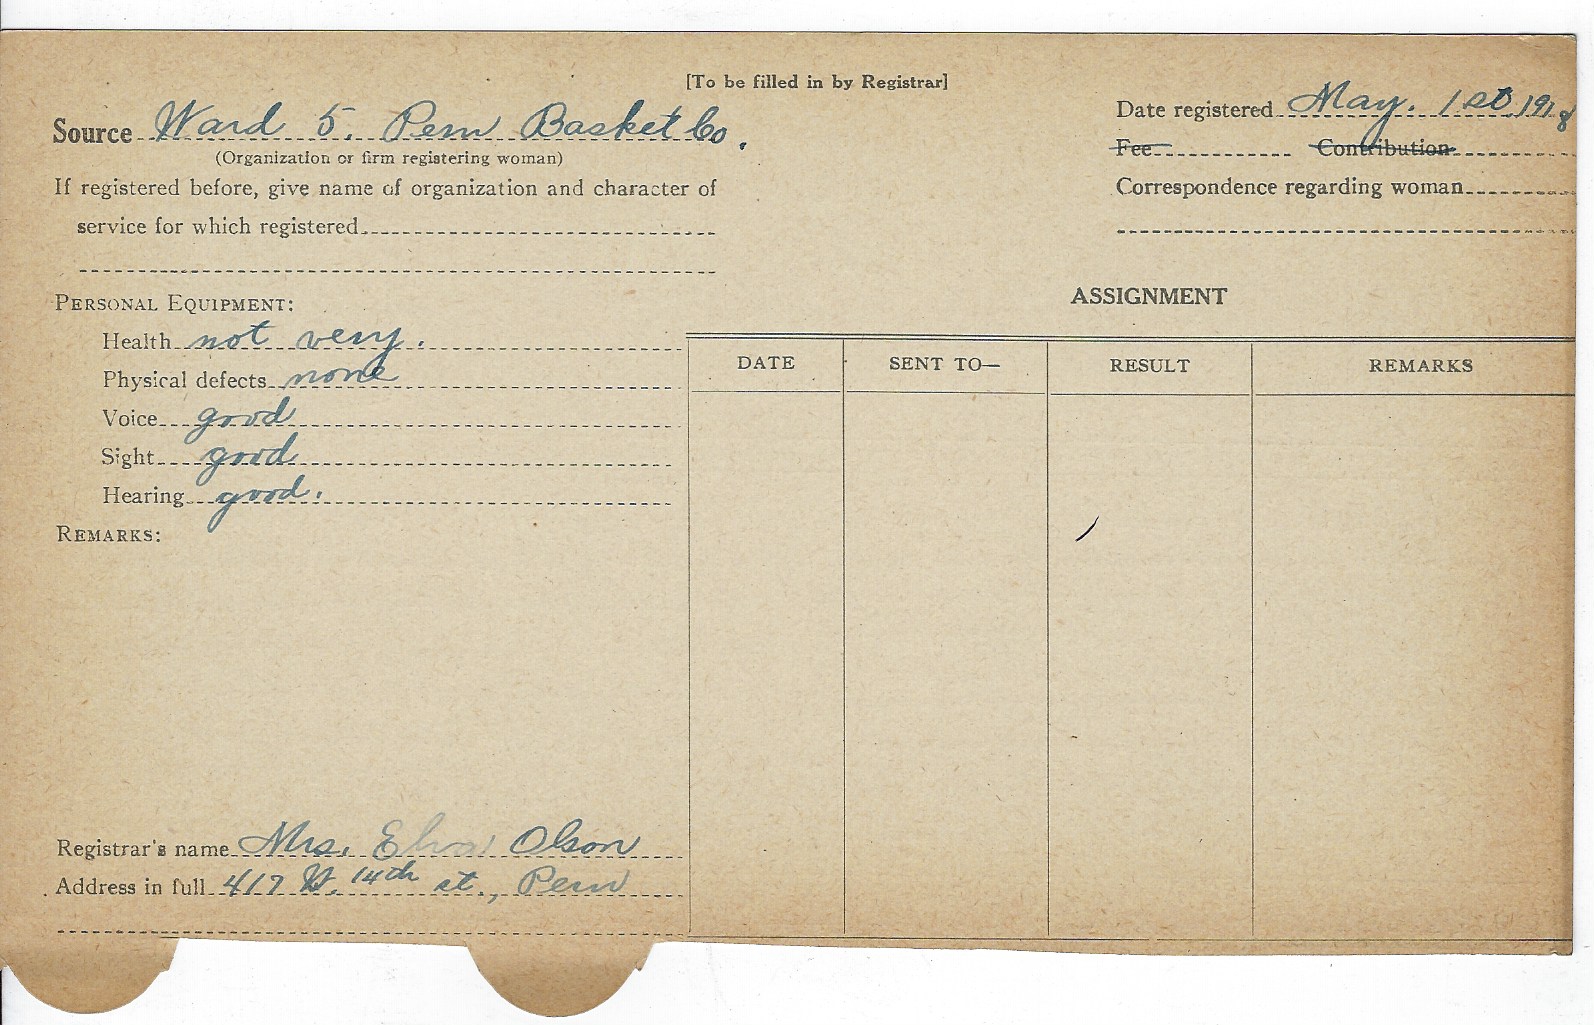 [To be filled in by Registrar]
Source Ward 5. Peru Basket Co.
(Organization or firm registering woman)
If registered before, give name of organization and character of
service for which registered
Date registered May. 1st 1918
Fee Contribution
Correspondence regarding woman
PERSONAL EQUIPMENT:
Health not very.
Physical defects none
Voice good
Sight good
Hearing good.
REMARKS:
ASSIGNMENT
DATE SENT TO— RESULT REMARKS
Registrar's name Mrs. Elva Olson
Address in full 417 W. 14th st., Peru